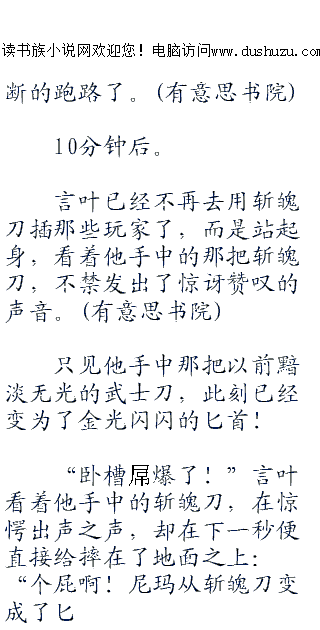 读书族小说网欢迎您！电脑访问www.dushuzu.com
断的跑路了。(有意思书院)
10分钟后。
言叶已经不再去用斩魄
刀插那些玩家了，而是站起
身，看着他手中的那把斩魄
刀，不禁发出了惊讶赞叹的
声音。(有意思书院)
只见他手中那把以前黯
淡无光的武士刀，此刻已经
变为了金光闪闪的匕首！
“卧槽屌爆了！”言叶
看着他手中的斩魄刀，在惊
愕出声之声，却在下一秒便
直接给摔在了地面之上：
“个屁啊！尼玛从斩魄刀变
成了匕